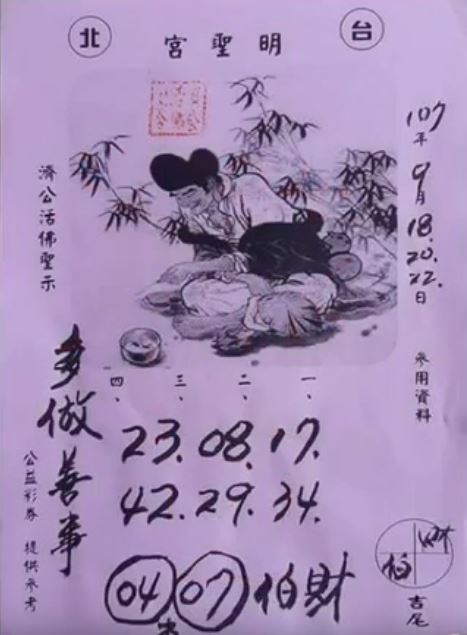 台 北
明聖宮
107年9月18.20.22.日
參用資料
濟公活佛聖示
一、 二、 三、 四、
17. 08. 23.
34. 29. 42.
多做善事
公益彩券 提供參考
04 07 伯財
財 伯
吉尾